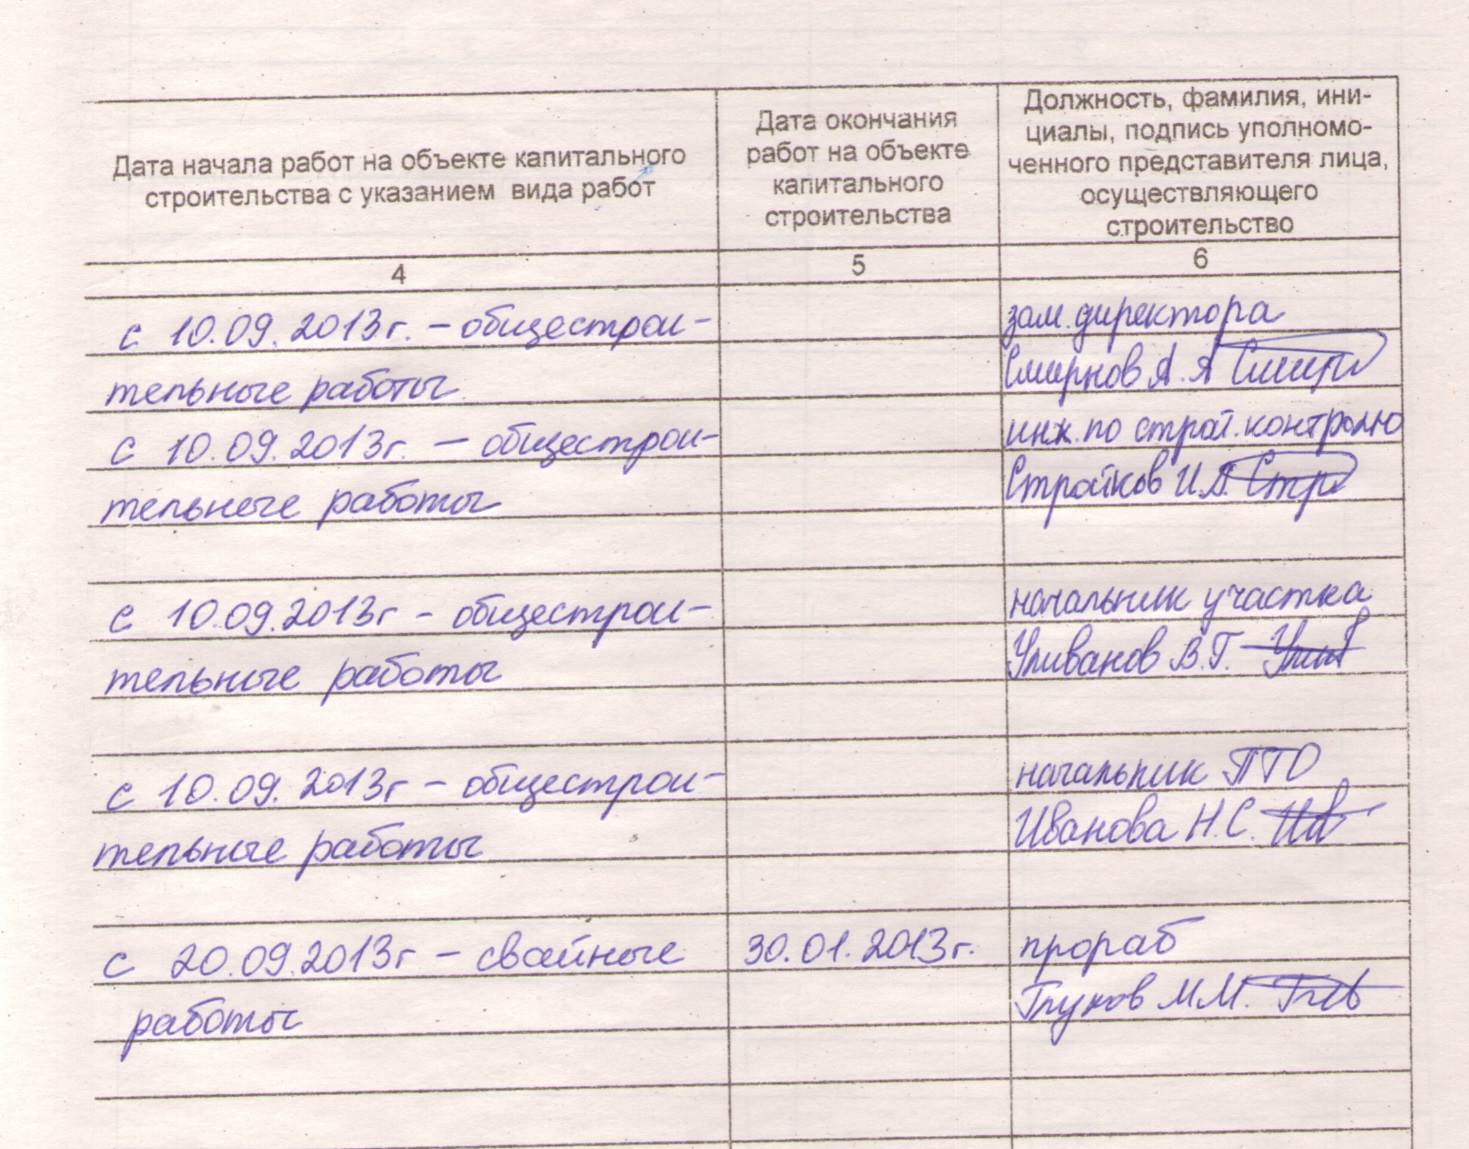 Дата начала работ на объекте капитального
строительства с указанием вида работ
Дата окончания
работ на объекте
капитального
строительства
Должность, фамилия, ини-
циалы, подпись уполномо-
ченного представителя лица,
осуществляющего
строительство
4
5
6
с 10.09.2013г. – общестрои-
тельные работы
зам. директора
Смирнов А.А Смир
с 10.09.2013г. – общестрои-
тельные работы
инж. по строй. контролю
Стройков И.А. Стр
с 10.09.2013г – общестрои-
тельные работы
начальник участка
Уливанов В.Г.
с 10.09.2013г – общестрои-
тельные работы
начальник ПТО
Иванова Н.С. Ив
с 20.09.2013г – свайные
работы
30.01.2013г.
прораб
Глухов М.М.